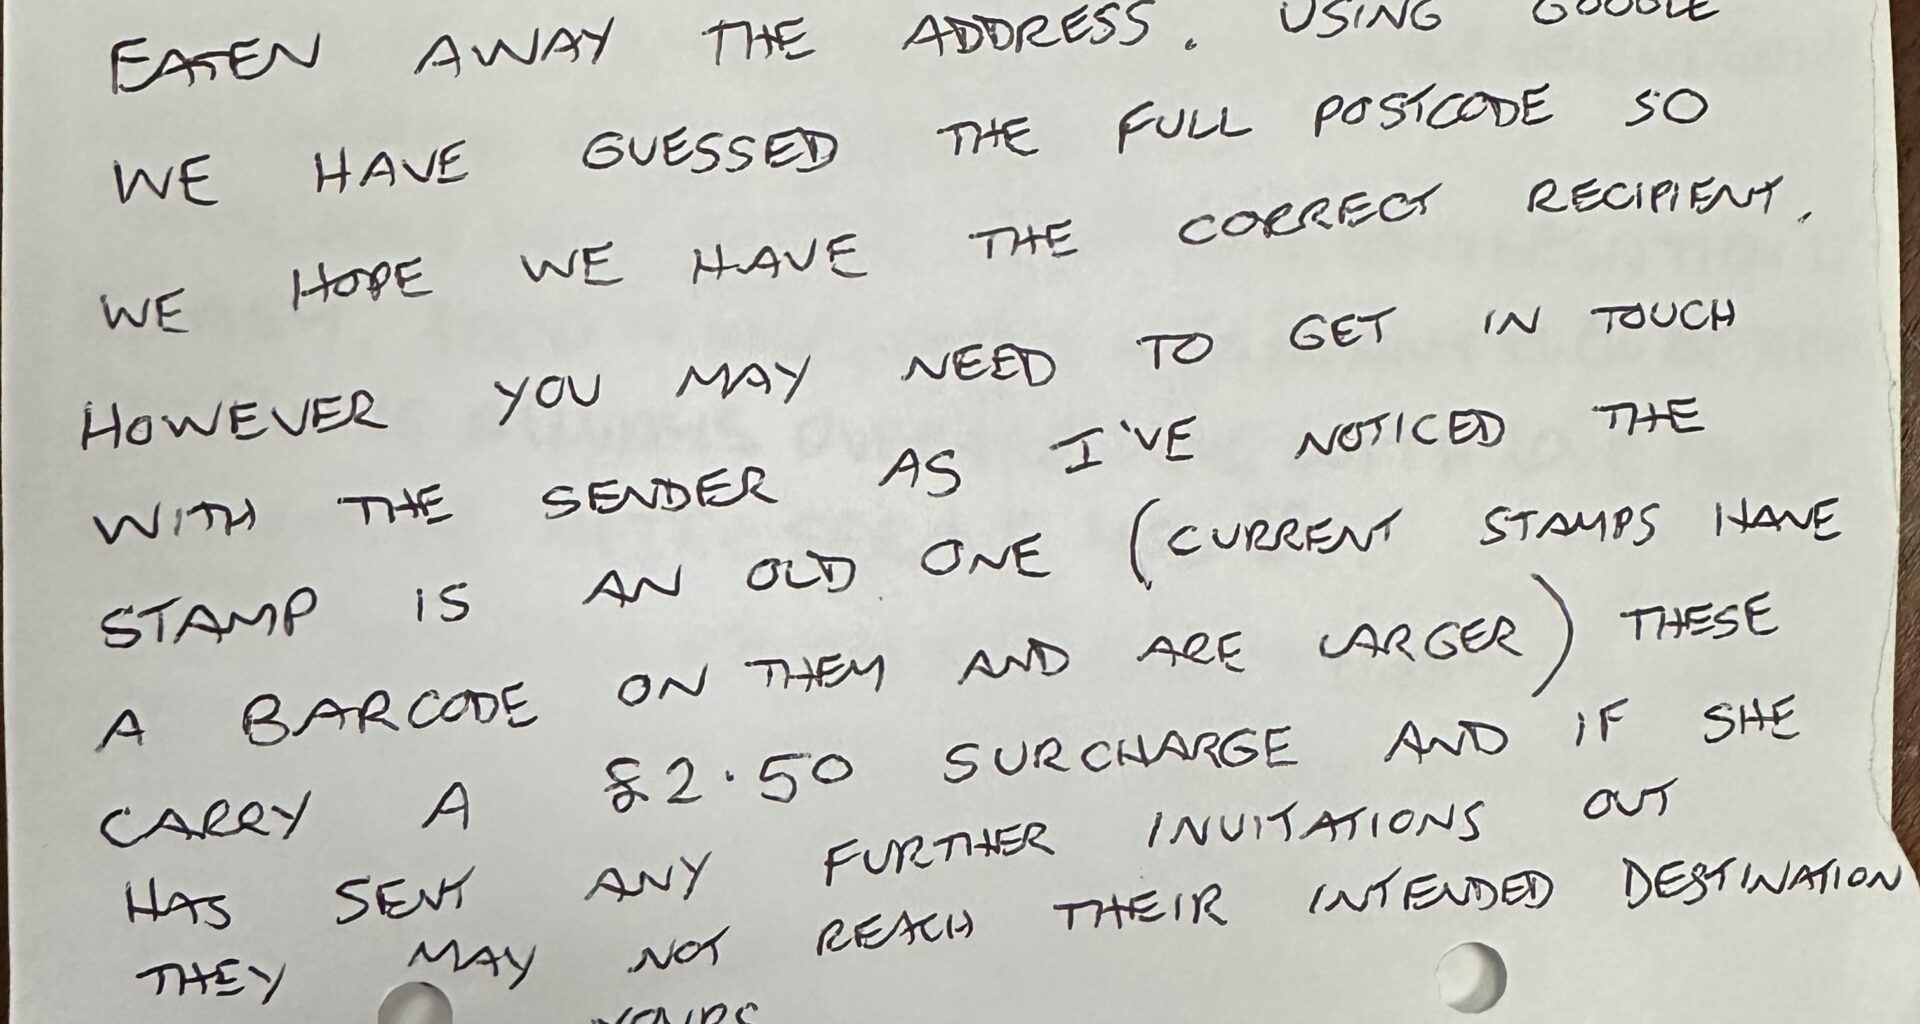 EATEN AWAY THE ADDRESS. USING GOOGLE
WE HAVE GUESSED THE FULL POSTCODE SO
WE HOPE WE HAVE THE CORRECT RECIPIENT.
HOWEVER YOU MAY NEED TO GET IN TOUCH
WITH THE SENDER AS I'VE NOTICED THE
STAMP IS AN OLD ONE (CURRENT STAMPS HAVE
A BARCODE ON THEM AND ARE LARGER) THESE
CARRY A £2.50 SURCHARGE AND IF SHE
HAS SENT ANY FURTHER INVITATIONS OUT
THEY MAY NOT REACH THEIR INTENDED DESTINATION
YOURS